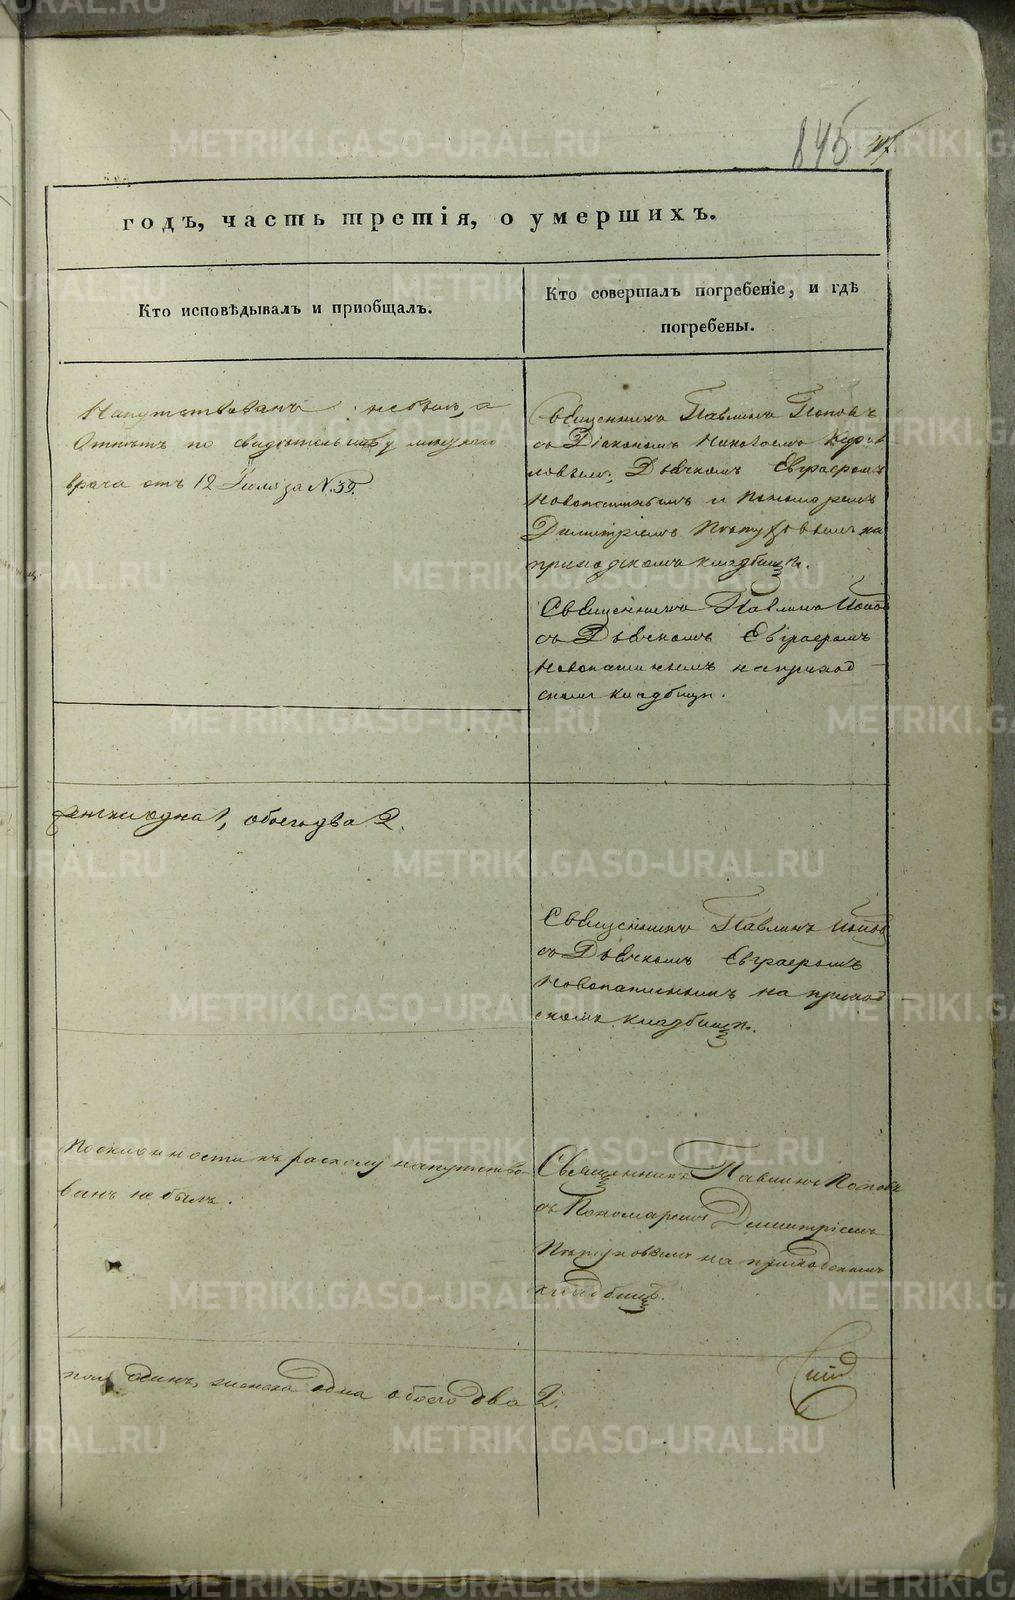 845
годъ, часть третія, о умершихъ.
Кто исповѣдывалъ и пріобщалъ.
Кто совершалъ погребеніе, и гдѣ
погребены.
Напутствованъ небылъ, а
Отпѣтъ по свидѣтельству
врача отъ 12 Іюля за №. 39.
Священникъ Павлинъ Поповъ
съ Діакономъ Николаемъ
Дьячкомъ Евграфомъ
Новопашинымъ и Пономаремъ
Димитріемъ Пѣтуховымъ на
приходскомъ кладбищѣ.
Священникъ Павлинъ Поповъ
съ Дьячкомъ Евграфомъ
Новопашинымъ на приход
скомъ кладбищѣ.
женска одна 1, обоего два 2.
Священникъ Павлинъ Поповъ
съ Дьячкомъ Евграфомъ
Новопашинымъ на приход
скомъ кладбищѣ.
По склонности къ расколу напутство-
ванъ не былъ.
Священникъ Павлинъ Поповъ
съ Пономаремъ Димитріемъ
Пѣтуховымъ на приходскомъ
кладбищѣ.
пола одинъ, женска одна обоего два 2.
METRIKI.GASO-URAL.RU